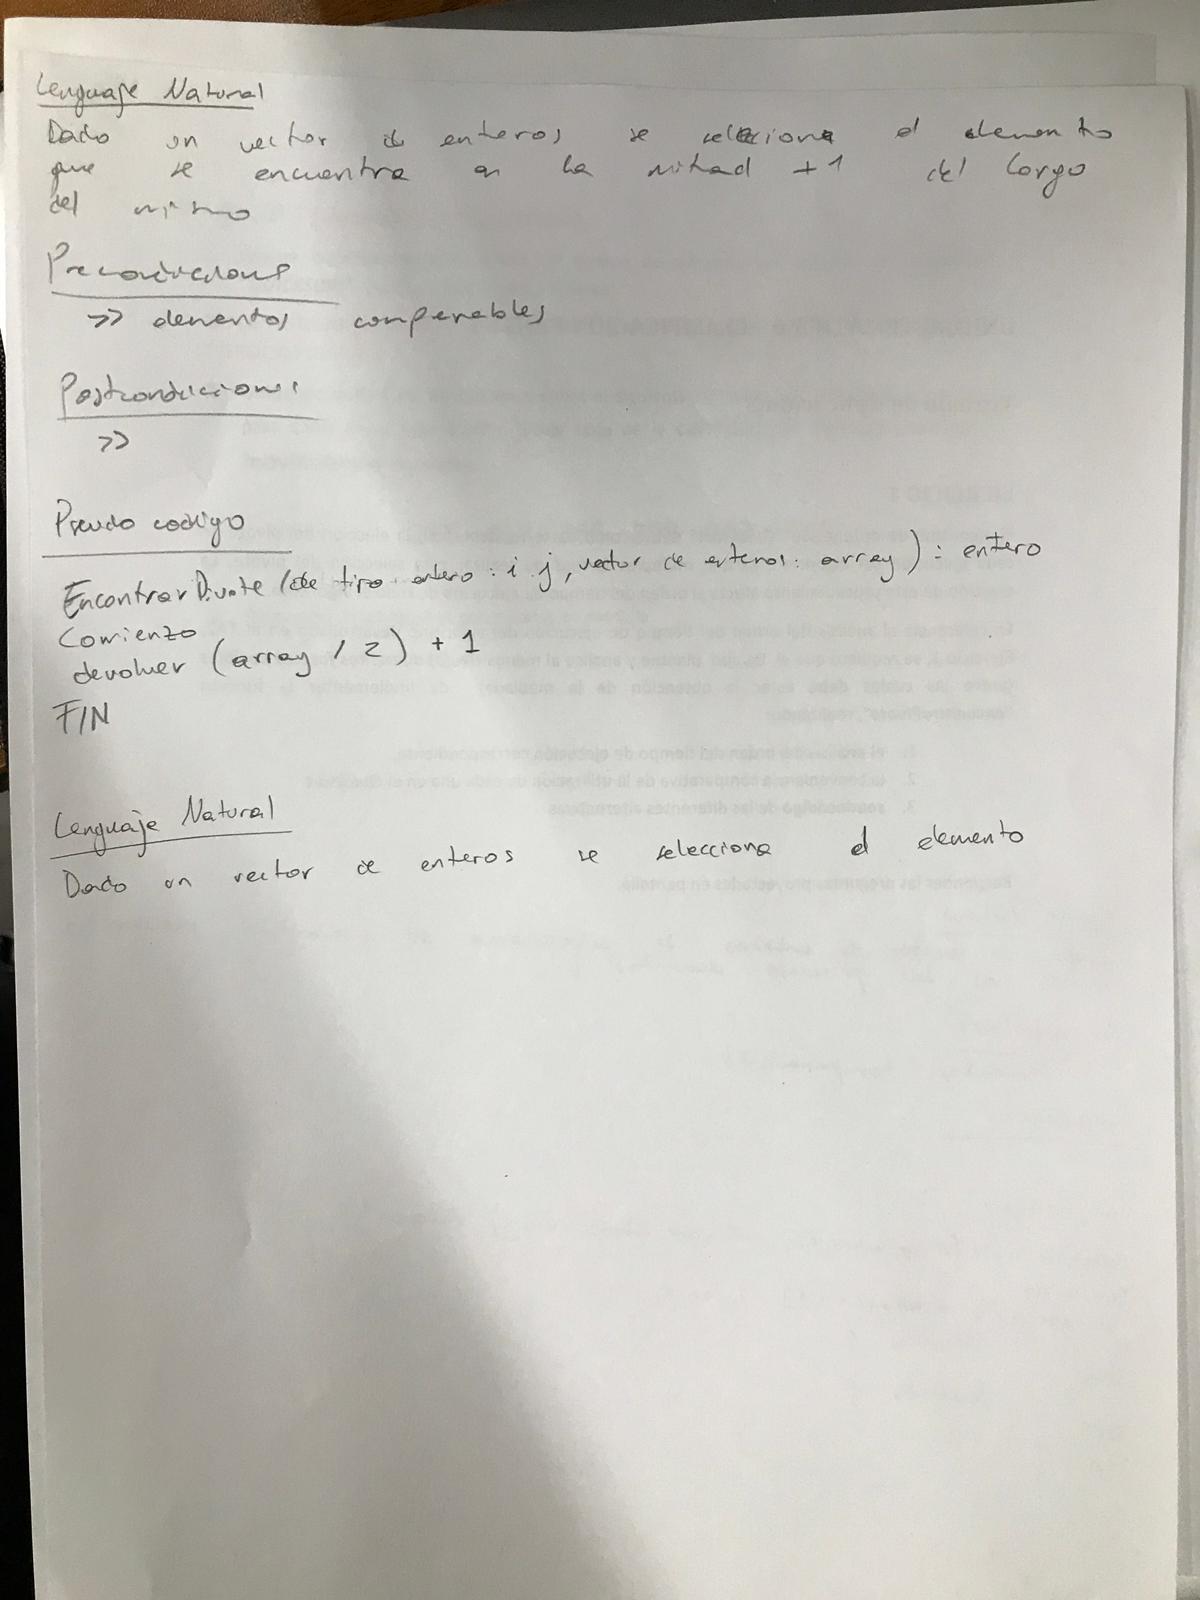 Lenguaje Natural
Dado un vector de enteros se selecciona el elemento
que se encuentra en la mitad +1 del largo
del mismo
Precondiciones
>> elementos comparables
Postcondiciones
>>
Pseudo codigo
Encontrar Pivote (de tipo entero: i j, vector de enteros: array) : entero
Comienzo
devolver (array / 2) + 1
FIN
Lenguaje Natural
Dado un vector de enteros se selecciona el elemento